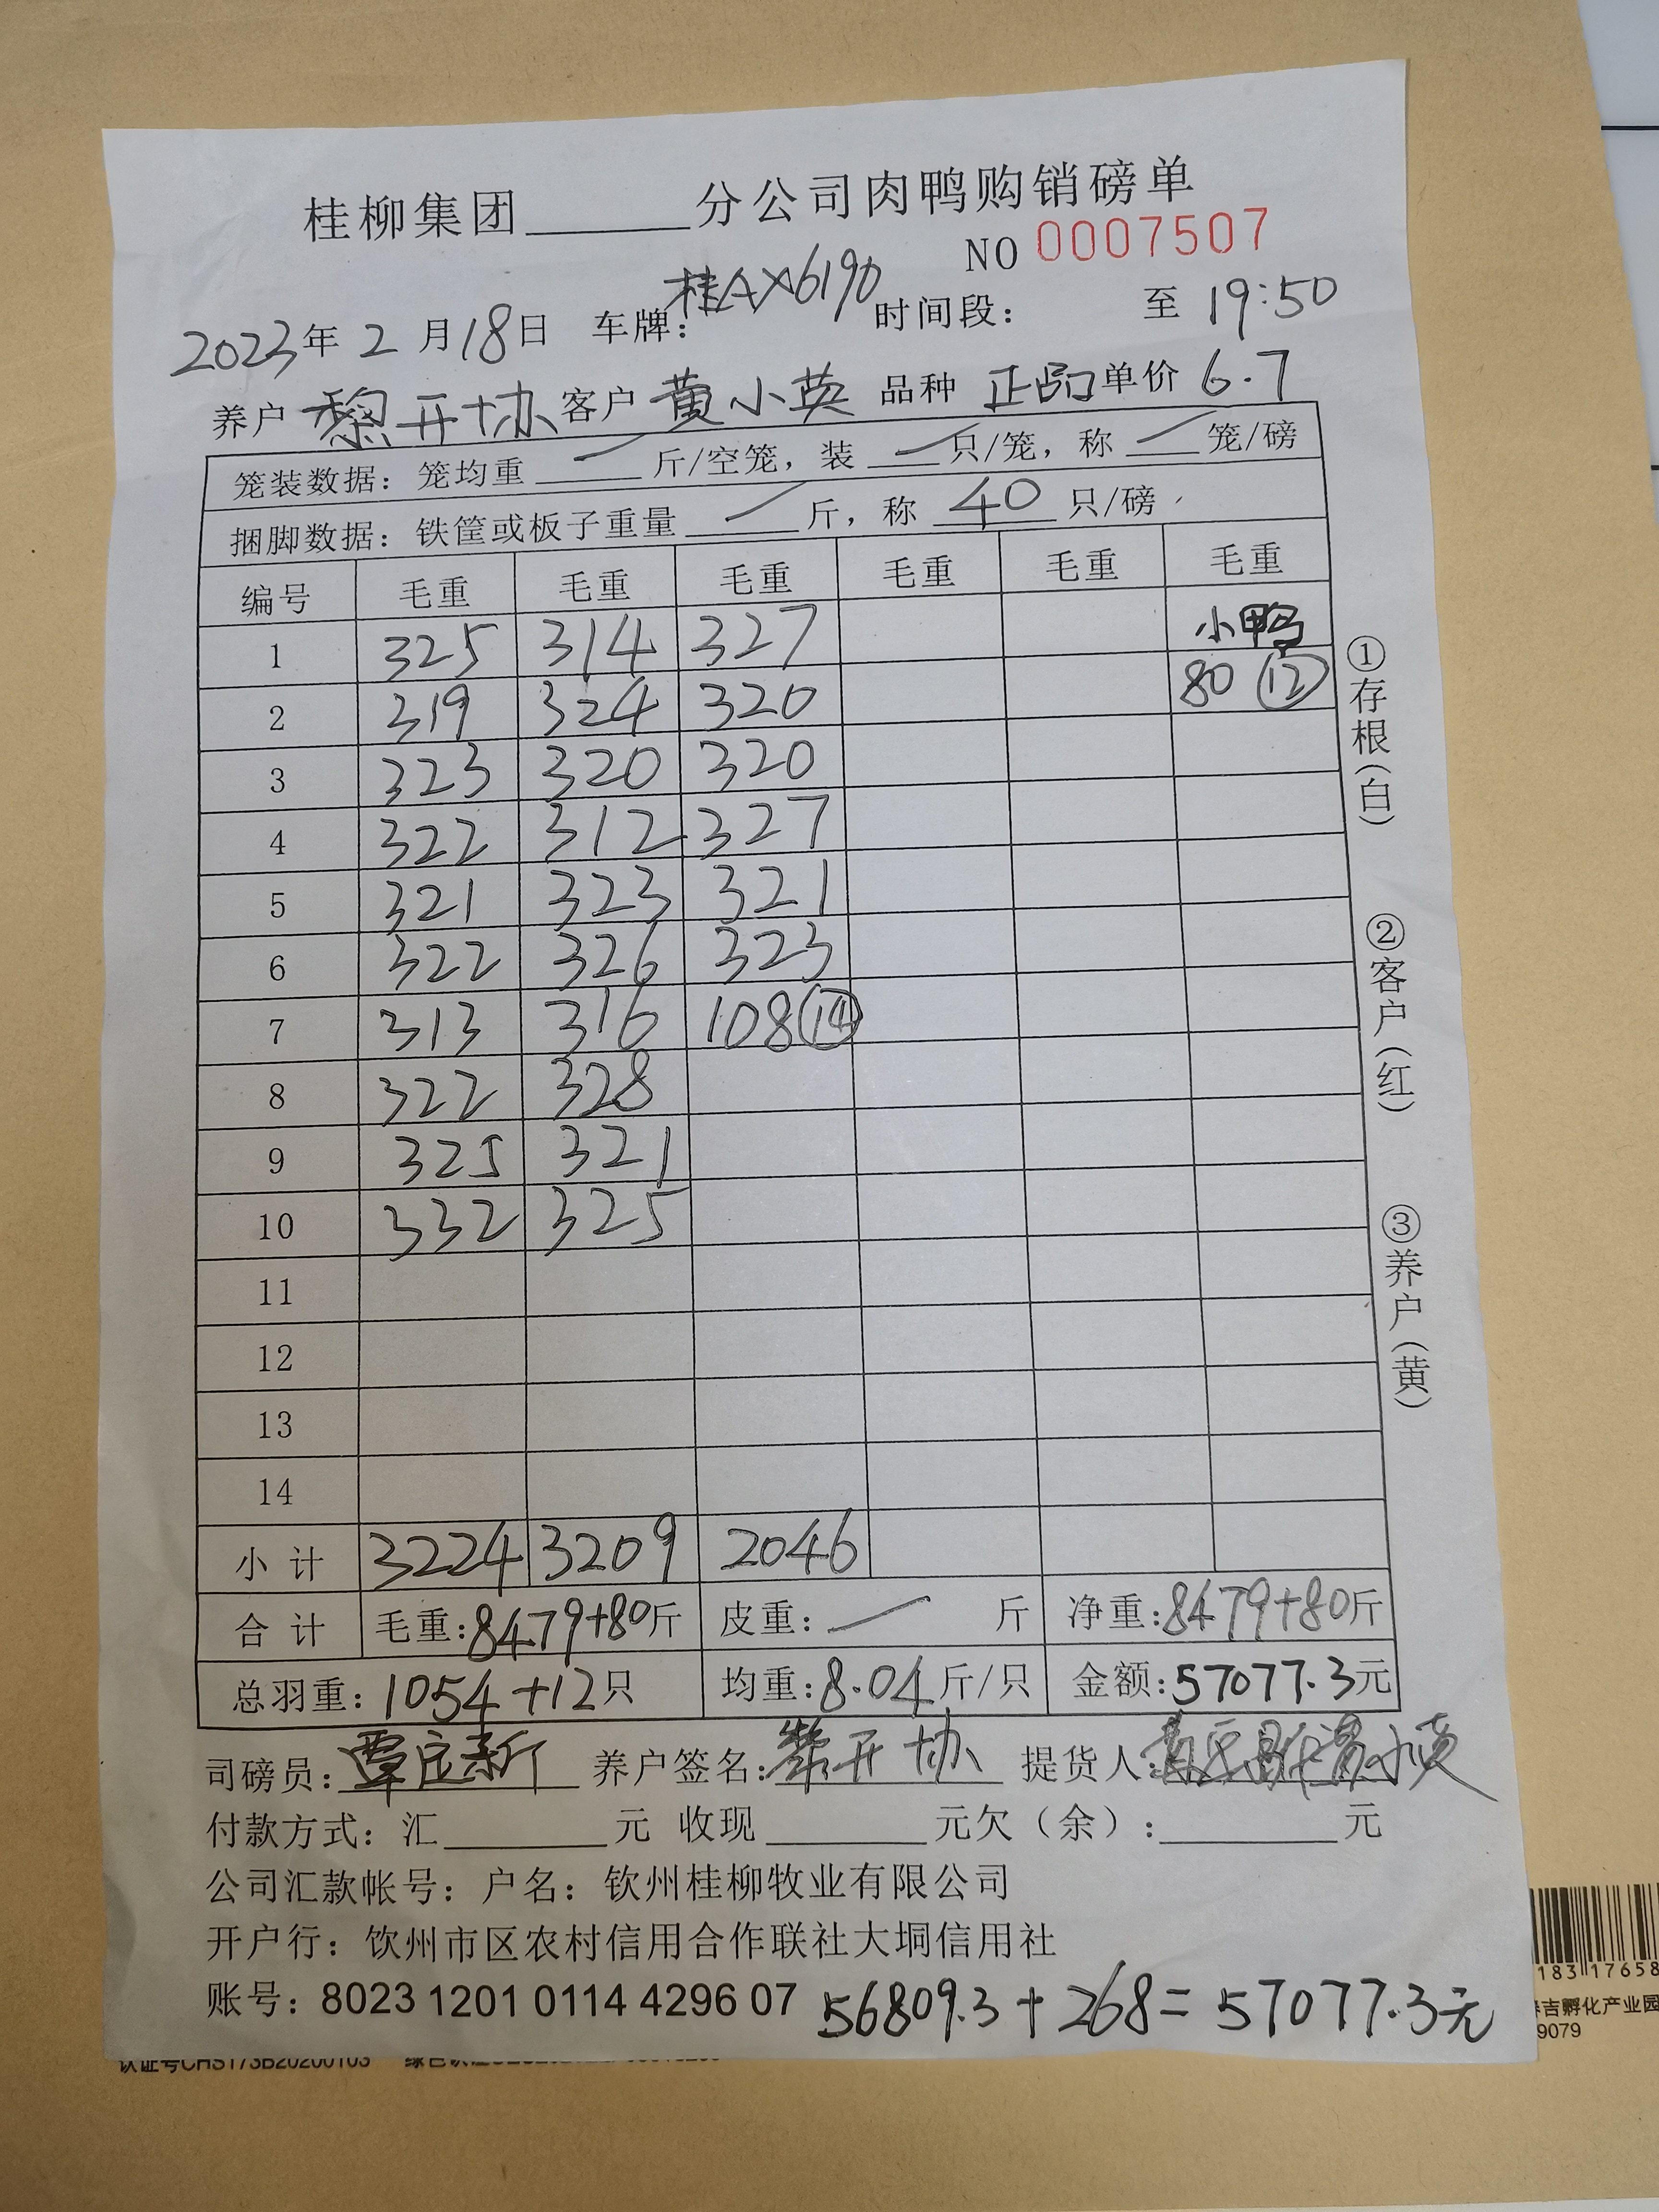 桂柳集团______分公司肉鸭购销磅单
NO 0007507
2023年 2 月 18日 车牌: 桂AX6190 时间段: 至 19:50
养户 黎开协 客户 黄小英 品种 正品 单价 6.7
笼装数据: 笼均重 / 斤/空笼, 装 / 只/笼, 称 / 笼/磅
捆脚数据: 铁筐或板子重量 / 斤, 称 40 只/磅
编号 毛重 毛重 毛重 毛重 毛重 毛重
1 325 314 327 小鸭
2 319 324 320 80 ⑫
3 323 320 320
4 322 312 327
5 321 323 321
6 322 326 323
7 313 316 108 ⑭
8 322 328
9 325 321
10 332 325
11
12
13
14
小计 3224 3209 2046
合计 毛重: 8479+80斤 皮重: / 斤 净重: 8479+80斤
总羽重: 1054+12只 均重: 8.04斤/只 金额: 57077.3元
司磅员: 覃庄新 养户签名: 黎开协 提货人: 黄小英
付款方式: 汇______元 收现______元欠(余):______元
公司汇款帐号: 户名: 钦州桂柳牧业有限公司
开户行: 钦州市区农村信用合作联社大垌信用社
账号: 8023 1201 0114 4296 07 56809.3+268=57077.3元
①存根(白)
②客户(红)
③养户(黄)
183 17658
吉孵化产业园
9079
认证号CHS173B20200103